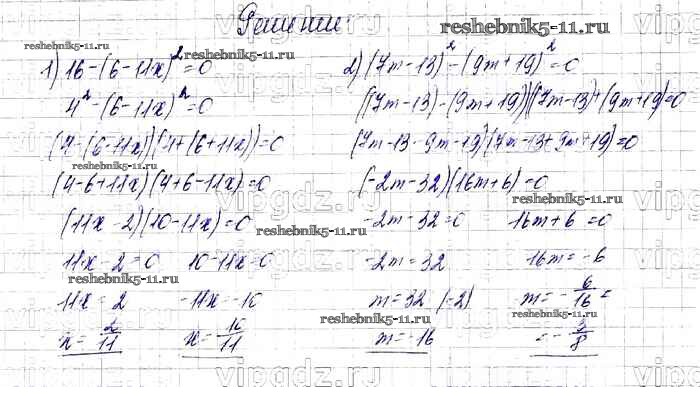 Решение:
reshebnik5-11.ru
reshebnik5-11.ru
reshebnik5-11.ru
1) 16-(6-11x)²=0
4²-(6-11x)²=0
(4-(6-11x))(4+(6+11x))=0
reshebnik5-11.ru
(4-6+11x)(4+6-11x)=0
(11x-2)(10-11x)=0
reshebnik5-11.ru
11x-2=0 10-11x=0
reshebnik5-11.ru
11x=2 -11x=-10
x=2/11 x=10/11
2) (7m-13)²-(9m+19)²=0
((7m-13)-(9m+19))((7m-13)+(9m+19))=0
(7m-13-9m-19)(7m-13+9m+19)=0
(-2m-32)(16m+6)=0
reshebnik5-11.ru
-2m-32=0 16m+6=0
-2m=32 16m=-6
m=32:(-2) m=-6/16=
reshebnik5-11.ru
m=-16 =-3/8
reshebnik5-11.ru
vipgdz.ru
vipgdz.ru
vipgdz.ru
vipgdz.ru